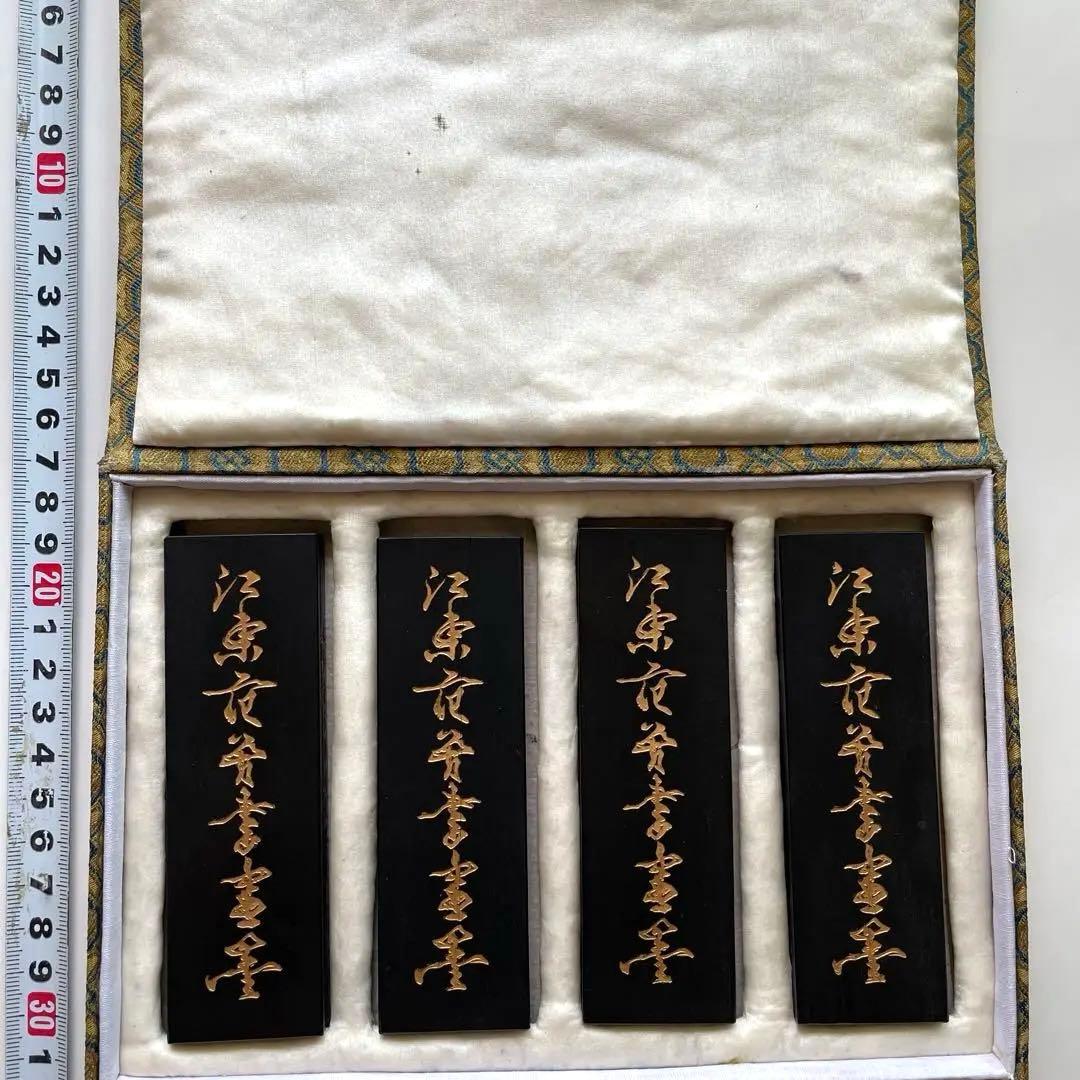 6
7
8
9
10
1
2
3
4
5
6
7
8
9
20
1
2
3
4
5
6
7
8
9
30
1
江東范曾書畫墨
江東范曾書畫墨
江東范曾書畫墨
江東范曾書畫墨